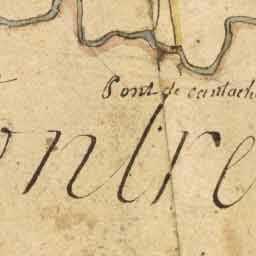 Pont de cantach
ontre